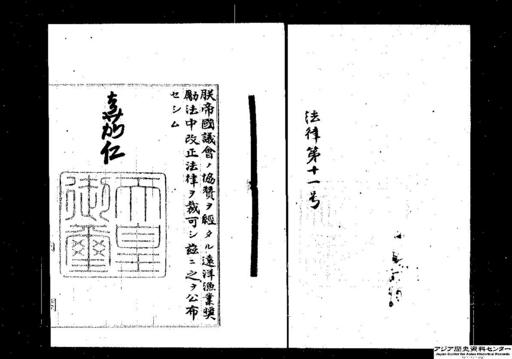 法律第十一号
朕帝國議會ノ協贊ヲ經タル遠洋漁業奬
勵法中改正法律ヲ裁可シ茲ニ之ヲ公布
セシム
嘉仁
天皇
御璽
アジア歴史資料センター
Japan Center for Asian Historical Records